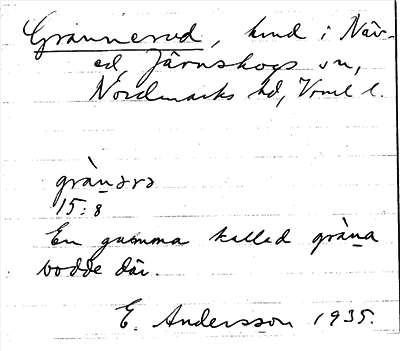 Grannerud, hmd i När-
ed, Järnskogs sn,
Nordmarks hd, Vrml l.
grànərə
15:8
En gumma kallad gràna
bodde där.
E. Andersson 1935.